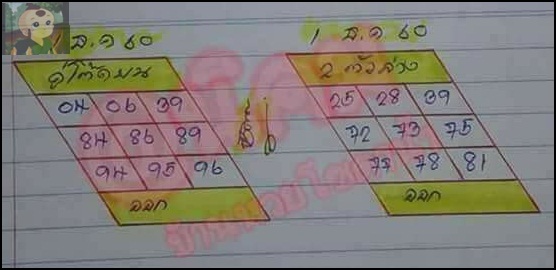 1 ส.ค 60
คู่โต๊ดบน
04 06 39
84 86 89
94 95 96
ออก
1 ส.ค 60
2 ตัวล่าง
25 28 39
72 73 75
77 78 81
ออก